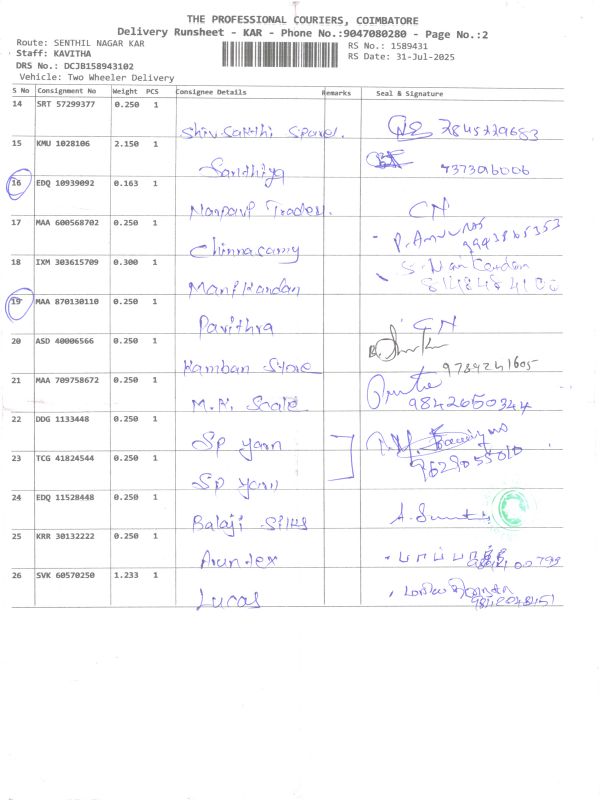 THE PROFESSIONAL COURIERS, COIMBATORE
Delivery Runsheet - KAR - Phone No.:9047080280 - Page No.:2
Route: SENTHIL NAGAR KAR
RS No.: 1589431
Staff: KAVITHA
RS Date: 31-Jul-2025
DRS No.: DCJB158943102
Vehicle: Two Wheeler Delivery
S No Consignment No Weight PCS Consignee Details Remarks Seal & Signature
14 SRT 57299377 0.250 1
Shiv Sakthi
15 KMU 1028106 2.150 1
Santhiya 7373096006
16 EDQ 10939092 0.163 1
CN
17 MAA 600568702 0.250 1
Chinnasamy
18 IXM 303615709 0.300 1
Manikandan
19 MAA 870130110 0.250 1
Pavithra CN
20 ASD 40006566 0.250 1
Kamban Store 9789241605
21 MAA 709758672 0.250 1
M.R. 9842650344
22 DDG 1133448 0.250 1
Sp yarn
23 TCG 41824544 0.250 1
Sp yarn
24 EDQ 11528448 0.250 1
Balaji Silks
25 KRR 30132222 0.250 1
Aruntex
26 SVK 60570250 1.233 1
Lucas